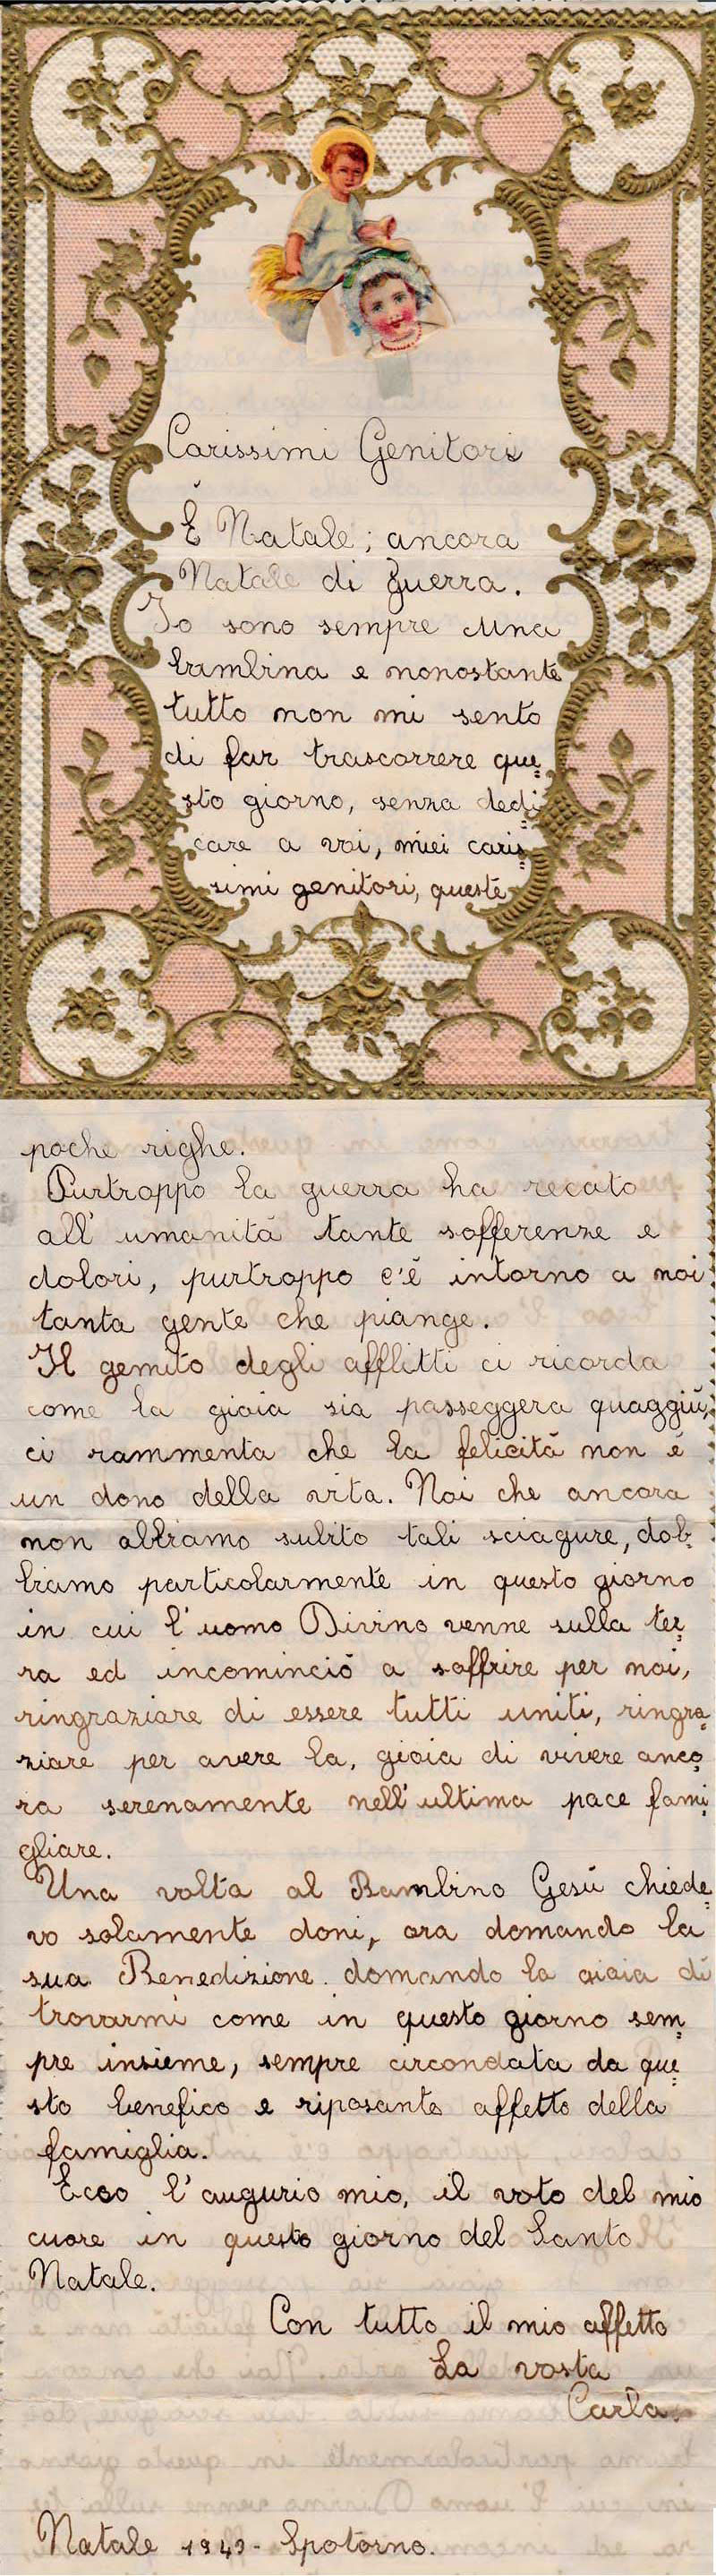 Carissimi Genitori
È Natale; ancora
Natale di guerra.
Io sono sempre una
bambina e nonostante
tutto non mi sento
di far trascorrere que=
sto giorno, senza dedi=
care a voi, miei caris=
simi genitori, queste
poche righe.
Purtroppo la guerra ha recato
all'umanità tante sofferenze e
dolori, purtroppo c'è intorno a noi
tanta gente che piange.
Il gemito degli afflitti ci ricorda
come la gioia sia passeggera quaggiù,
ci rammenta che la felicità non è
un dono della vita. Noi che ancora
non abbiamo subito tali sciagure, dob=
biamo particolarmente in questo giorno
in cui l'uomo Divino venne sulla ter=
ra ed incominciò a soffrire per noi,
ringraziare di essere tutti uniti, ringra=
ziare per avere la, gioia di vivere anco=
ra serenamente nell'ultima pace fami=
gliare.
Una volta al Bambino Gesù chiede=
vo solamente doni, ora domando la
sua Benedizione. domando la gioia di
trovarmi come in questo giorno sem=
pre insieme, sempre circondata da que=
sto benefico e riposante affetto della
famiglia.
Ecco l'augurio mio, il voto del mio
cuore in questo giorno del Santo
Natale.
Con tutto il mio affetto
La vosta
Carla.
Natale 1943 - Spotorno.